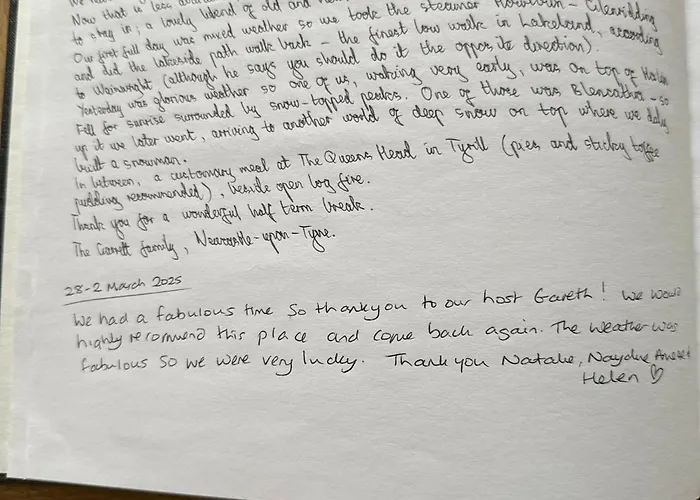 Now that is less
to stay in; a lovely blend of old and
Our first full day was mixed weather so we took the steamer Howtown - Glenridding
and did the lakeside path walk back - the finest low walk in Lakeland, according
to Wainwright (although he says you should do it the opposite direction).
Yesterday was glorious weather so one of us, waking very early, was on top of Hallin
Fell for sunrise surrounded by snow-topped peaks. One of those was Blencathra - so
up it we later went, arriving to another world of deep snow on top where we duly
built a snowman.
In between, a customary meal at The Queens Head in Tyrill (pies and sticky toffee
pudding recommended), beside open log fire.
Thank you for a wonderful half term break.
The family, Newcastle-upon-Tyne.
28-2 March 2025
We had a fabulous time so thankyou to our host Gareth! We would
highly recommend this place and come back again. The weather was
fabulous so we were very lucky. Thank you Natalie,
Helen ♡